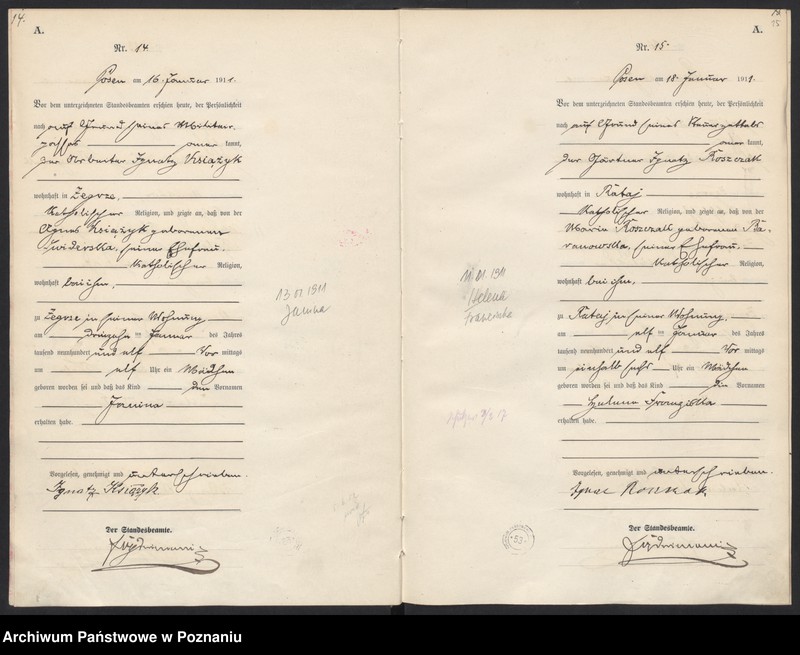 14.
A.
Nr. 14
Posen am 16. Januar 1911.
Vor dem unterzeichneten Standesbeamten erschien heute, der Persönlichkeit
nach auf Grund seines Militär-
passes kannt,
der Arbeiter Ignatz Książyk
wohnhaft in Zegrze,
katholischer Religion, und zeigte an, daß von der
Agnes Książyk geborenen
Swiderska, seiner Ehefrau,
katholischer Religion,
wohnhaft bei ihm,
zu Zegrze in seiner Wohnung
am dreizehn ten Januar des Jahres
tausend neunhundert und elf Vor mittags
um elf Uhr ein Mädchen
geboren worden sei und daß das Kind den Vornamen
Janina
erhalten habe.
Vorgelesen, genehmigt und unterschrieben.
Ignatz Książyk
Der Standesbeamte.
13.01.1911
Janina
15
A.
Nr. 15
Posen am 18. Januar 1911.
Vor dem unterzeichneten Standesbeamten erschien heute, der Persönlichkeit
nach auf Grund seines Steuerzettels
kannt,
der Gärtner Ignatz Koszczak
wohnhaft in Rataj
katholischer Religion, und zeigte an, daß von der
Maria Koszczak geborenen
seiner Ehefrau
katholischer Religion,
wohnhaft bei ihm,
zu Rataj in seiner Wohnung,
am elf ten Januar des Jahres
tausend neunhundert und elf Vor mittags
um Uhr ein Mädchen
geboren worden sei und daß das Kind die Vornamen
Helena Franziska
erhalten habe.
Vorgelesen, genehmigt und unterschrieben.
Ignac
Der Standesbeamte.
11.01.1911
Helena
Franciszka
53
Archiwum Państwowe w Poznaniu